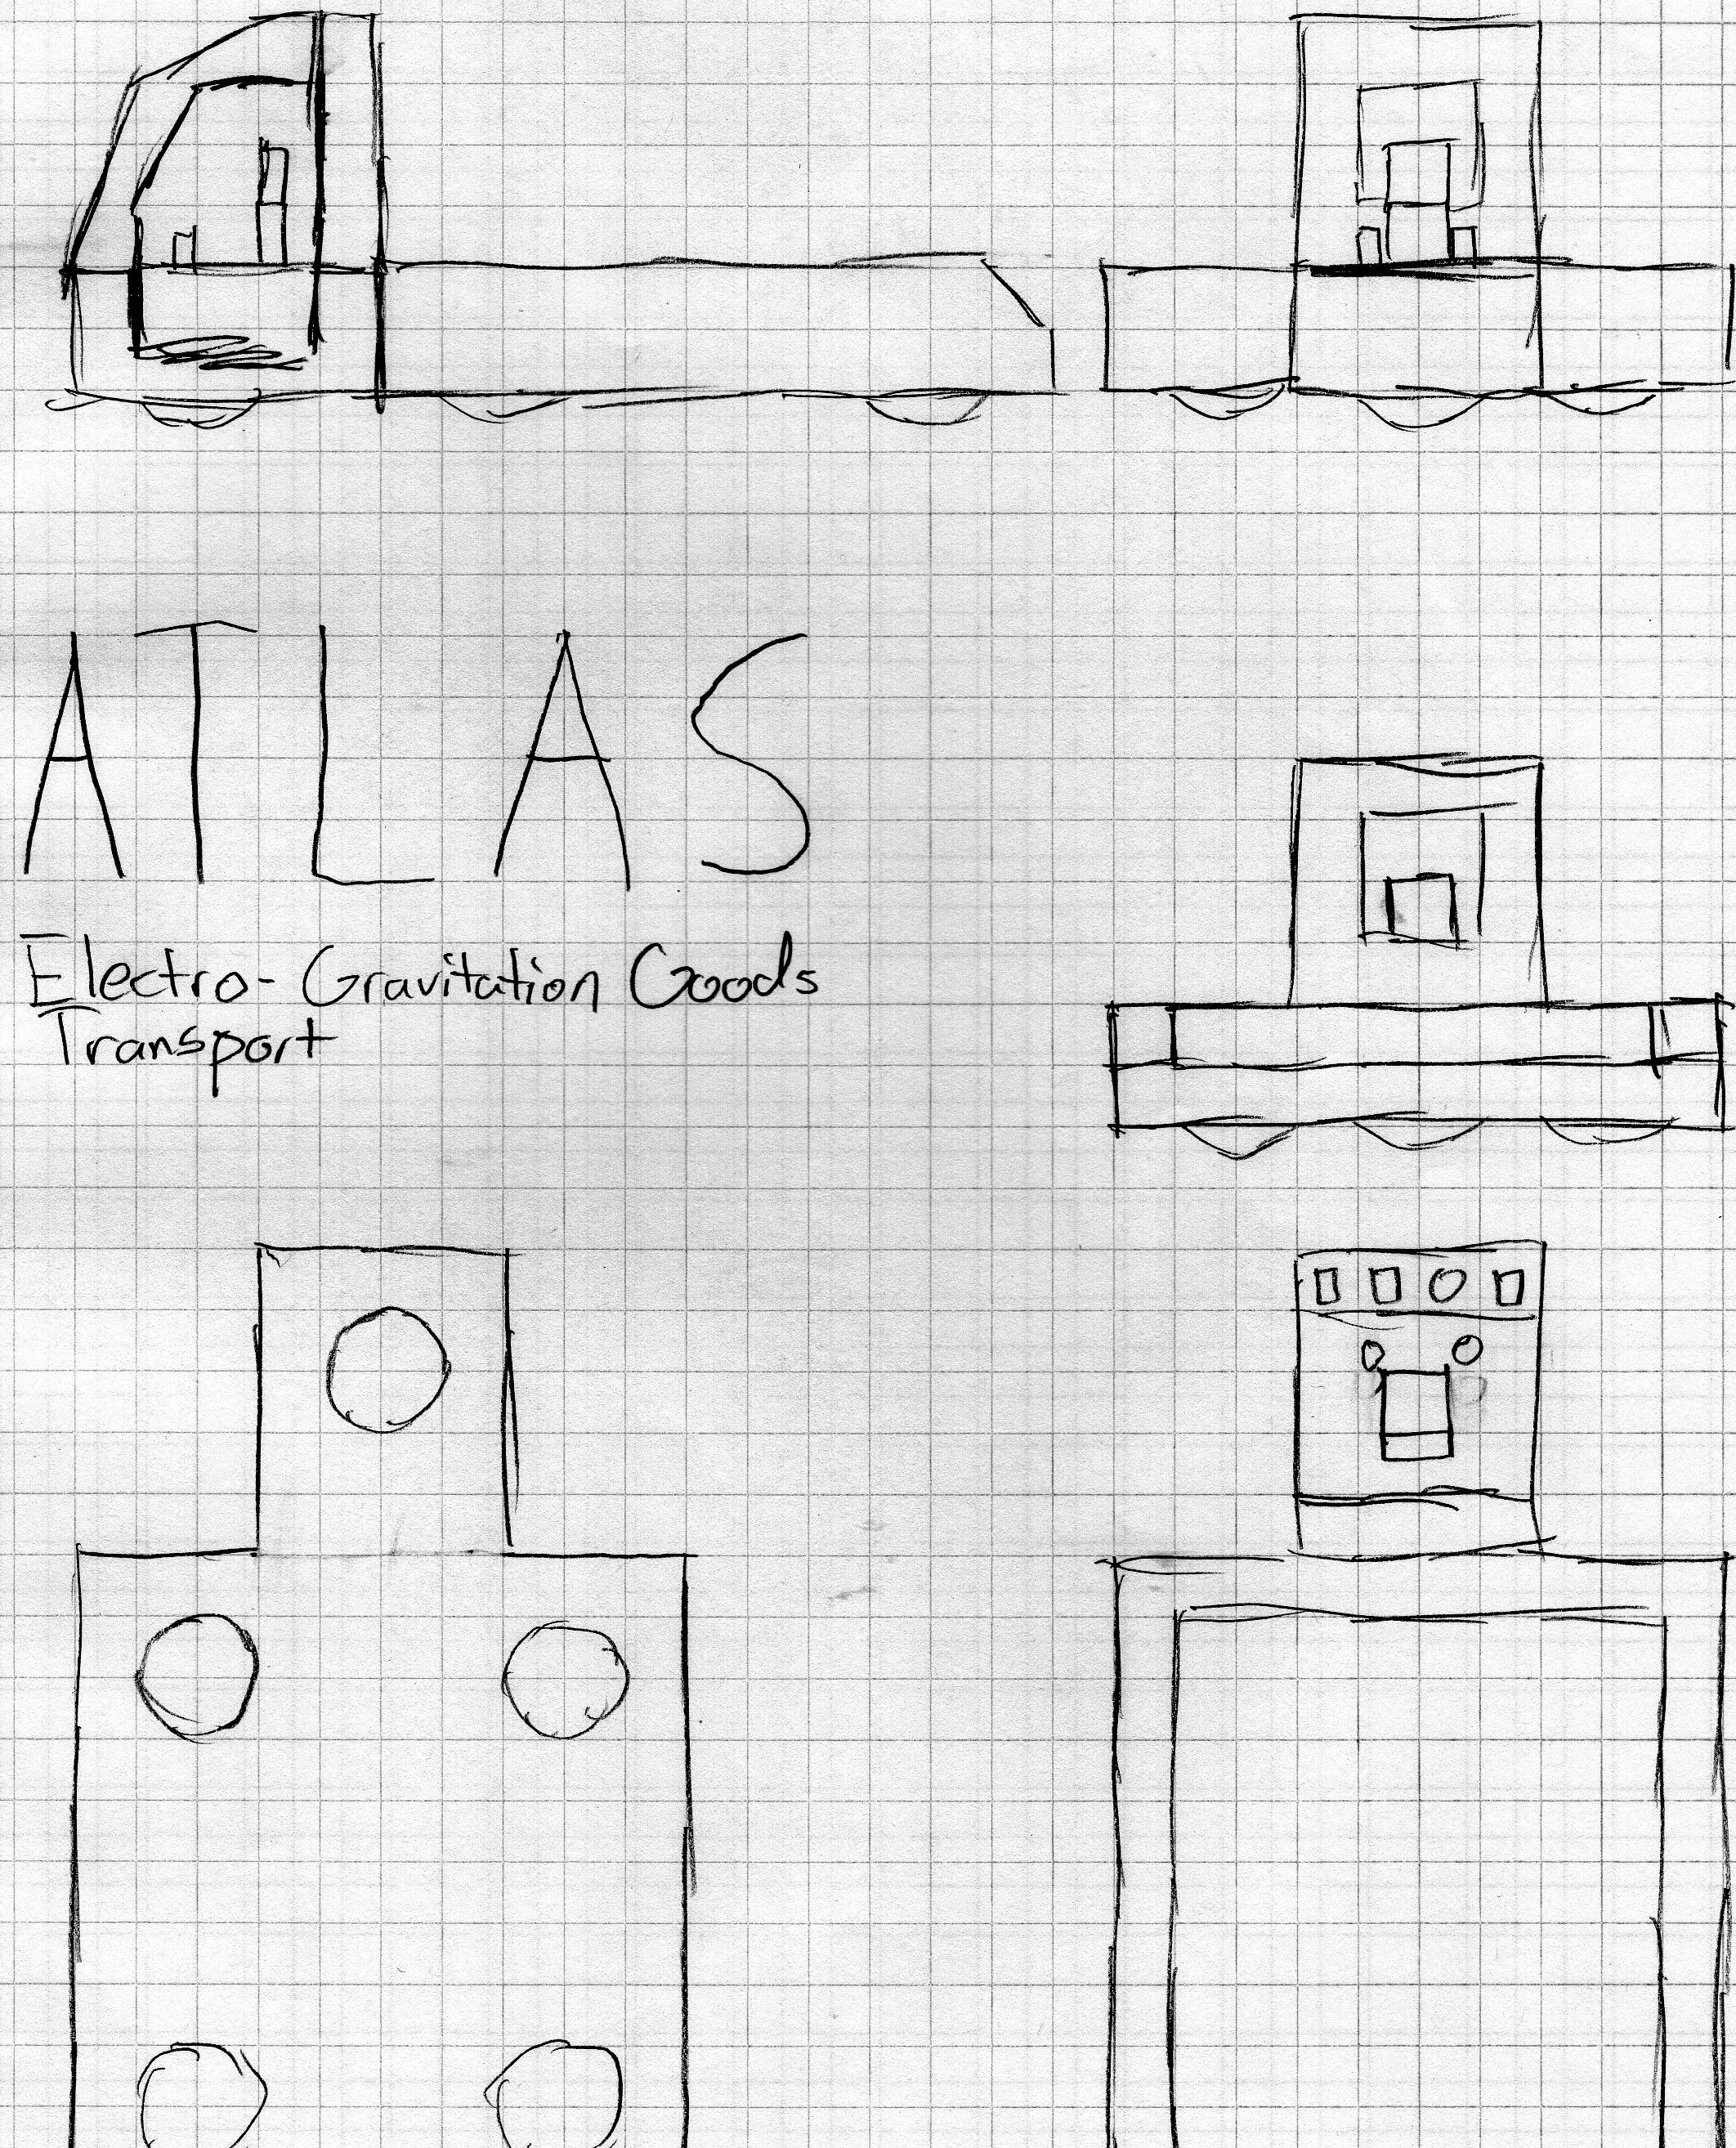 ATLAS
Electro-Gravitation Goods
Transport